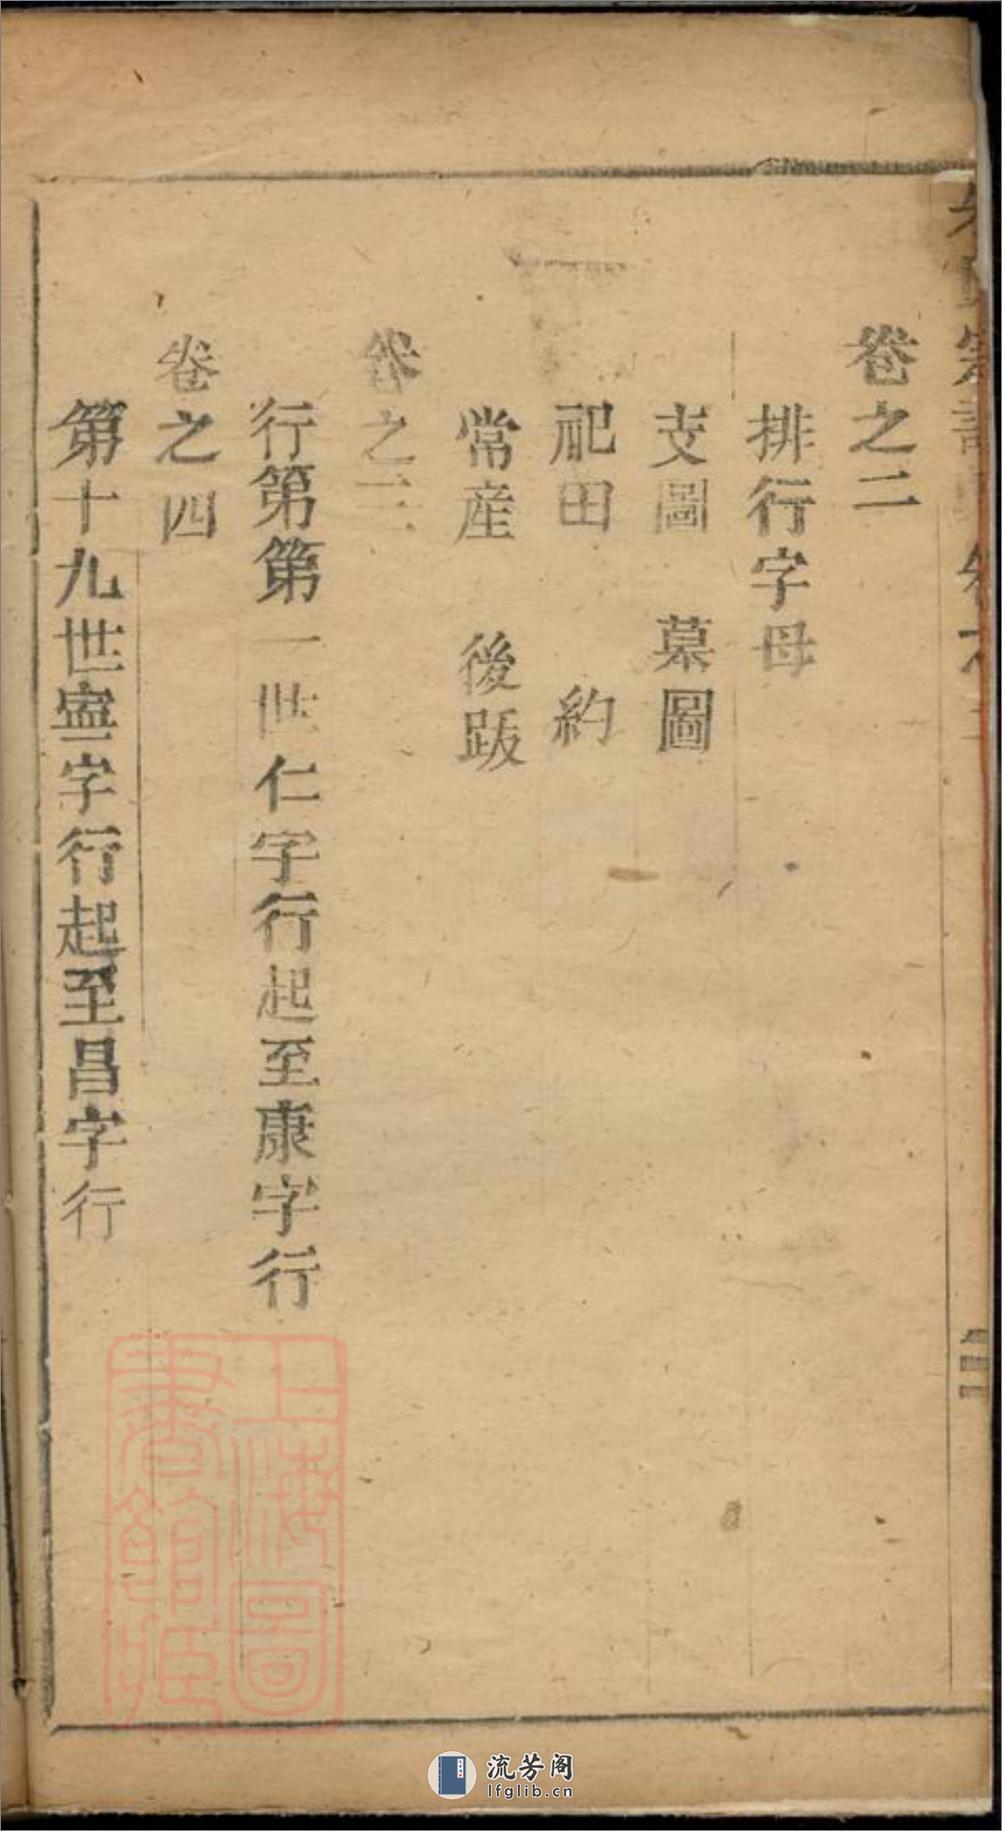 卷之二
排行字母
支圖 墓圖
祀田 約
常産 後跋
卷之三
行第第一世仁字行起至康字行
卷之四
第十九世寍字行起至昌字行
上海圖
書館藏
流芳阁
lfglib.cn